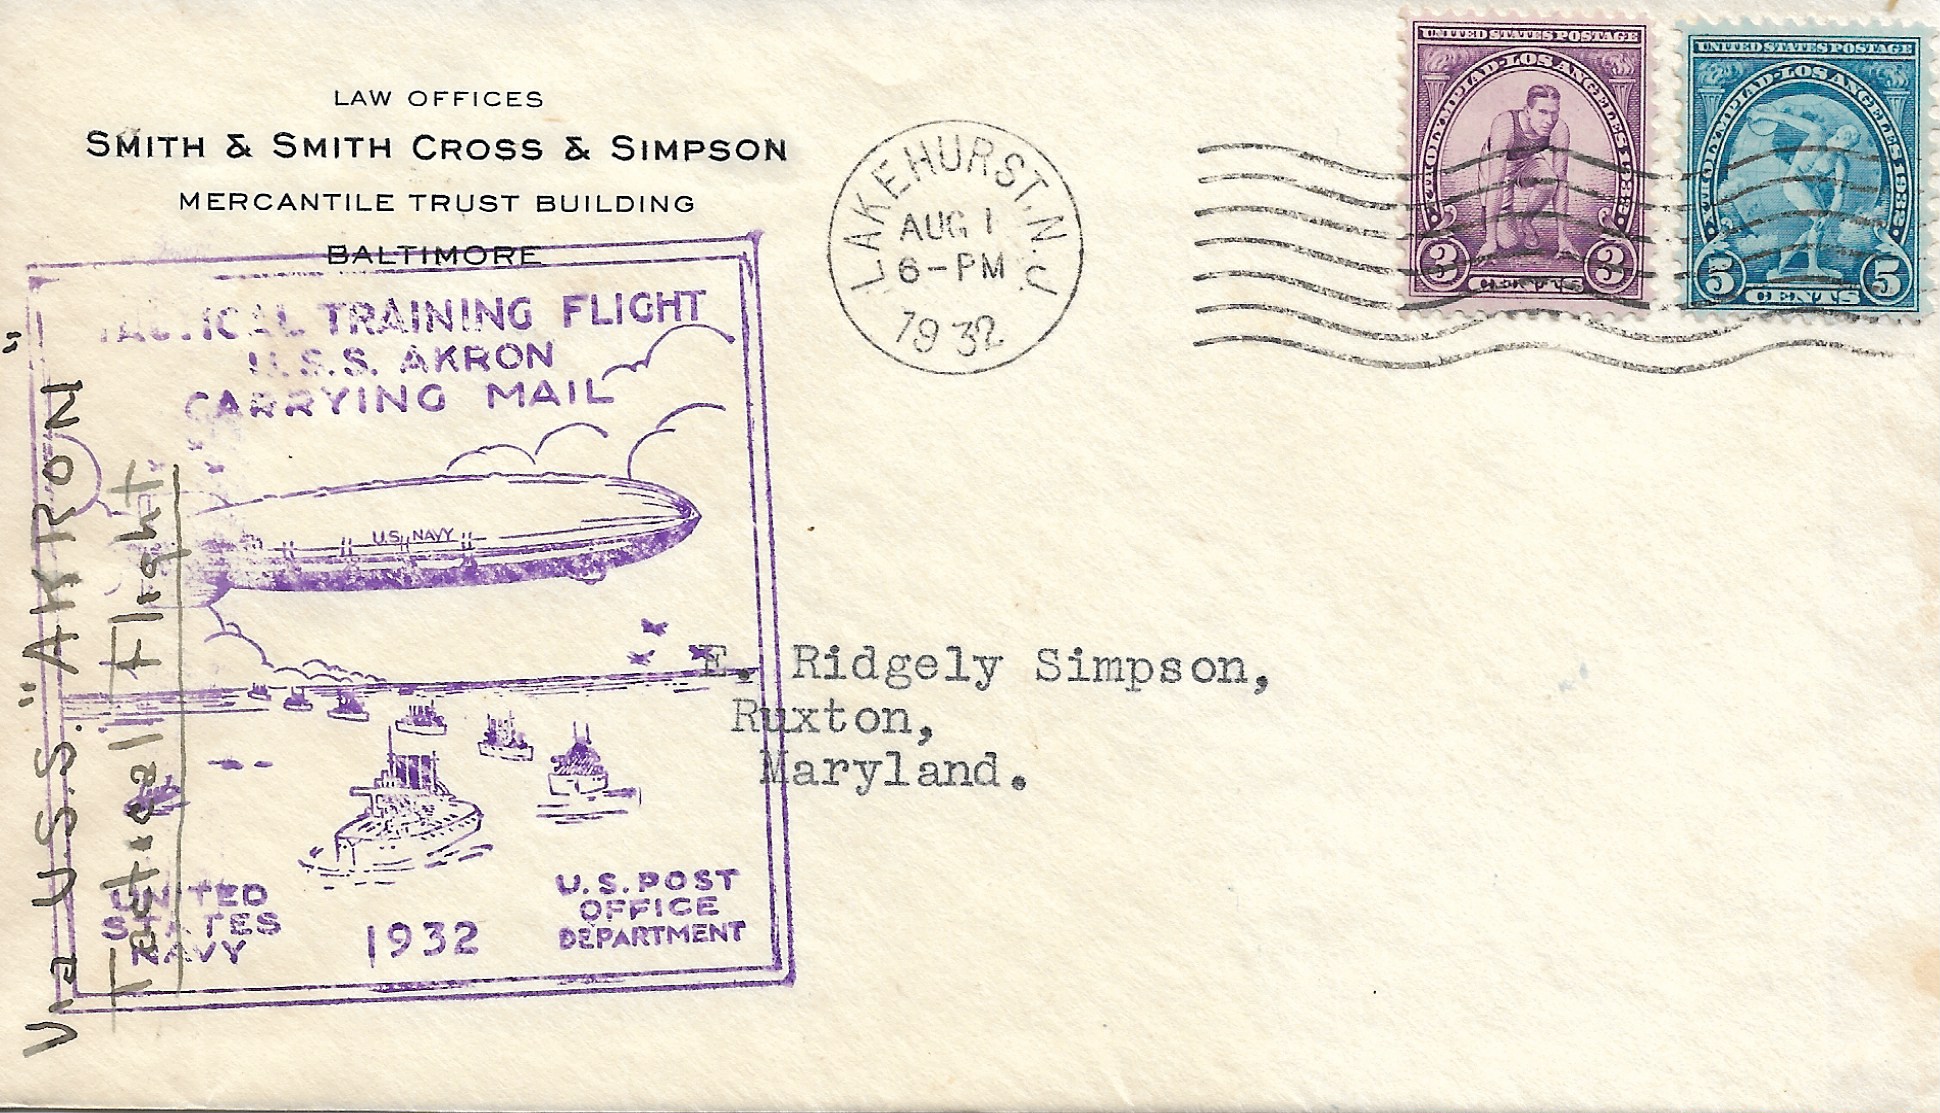 LAW OFFICES
SMITH & SMITH CROSS & SIMPSON
MERCANTILE TRUST BUILDING
BALTIMORE
LAKEHURST, N.J.
AUG 1
6-PM
1932
UNITED STATES POSTAGE
XTH OLYMPIAD·LOS ANGELES 1932
3 3
CENTS
UNITED STATES POSTAGE
XTH OLYMPIAD·LOS ANGELES 1932
5 5
CENTS
TACTICAL TRAINING FLIGHT
U.S.S. AKRON
CARRYING MAIL
U.S. NAVY
UNITED
STATES
NAVY
1932
U.S. POST
OFFICE
DEPARTMENT
Via U.S.S. "AKRON"
Tacticall Flight
E. Ridgely Simpson,
Ruxton,
Maryland.